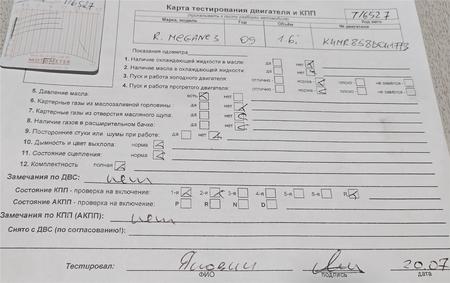 Т/6527
Карта тестирования двигателя и КПП
(прикалывать к листу разбора автомобиля)
Т/6527
Марка, модель Год Объем № двигателя Код авто
R. MEGANE 3 09 1.6
Показания одометра
1. Наличие охлаждающей жидкости в масле: да нет
2. Наличие масла в охлаждающей жидкости: да нет
3. Пуск и работа холодного двигателя: отлично норма плохо не завелся
4. Пуск и работа прогретого двигателя: отлично норма плохо не завелся
5. Давление масла: есть нет
6. Картерные газы из маслозаливной горловины: да нет
7. Картерные газы из отверстия масляного щупа: да нет
8. Наличие газов в расширительном бачке: да нет
9. Посторонние стуки или шумы при работе: да нет
10. Дымность и цвет выхлопа: норма
11. Состояние сцепления: норма
12. Комплектность полная
Замечания по ДВС: нет
Состояние КПП - проверка на включение: 1-я 2-я 3-я 4-я 5-я R
Состояние АКПП - проверка на включение: P R N D
Замечания по КПП (АКПП): нет
Снято с ДВС (по согласованию!):
Тестировал: 20.07
ФИО подпись дата